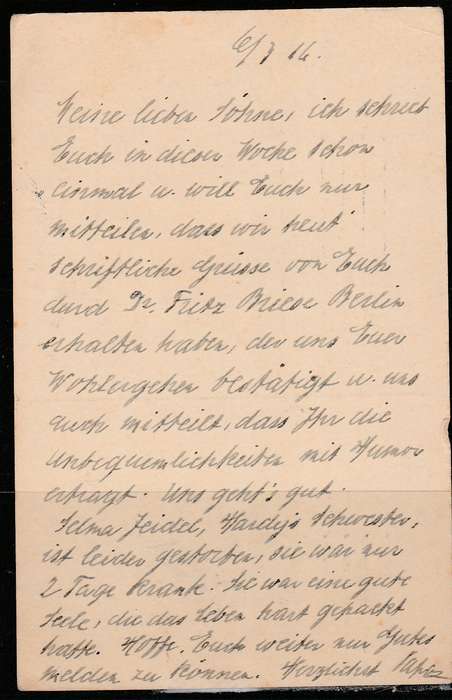 6/3 16.
Meine lieben Söhne, ich schrieb
Euch in dieser Woche schon
einmal u. will Euch nur
mitteilen, dass wir heut
schriftliche Grüsse von Euch
durch Dr. Fritz Berlin
erhalten haben, der uns Euer
Wohlergehen bestätigt u. uns
auch mitteilt, dass Ihr die
Unbequemlichkeiten mit Humor
ertragt. Uns geht's gut.
Selma Zeidel, Schwester,
ist leider gestorben, sie war nur
2 Tage krank. Sie war eine gute
Seele, die das Leben hart gepackt
hatte. Hoffe, Euch weiter nur Gutes
melden zu können. Herzlichst Papa